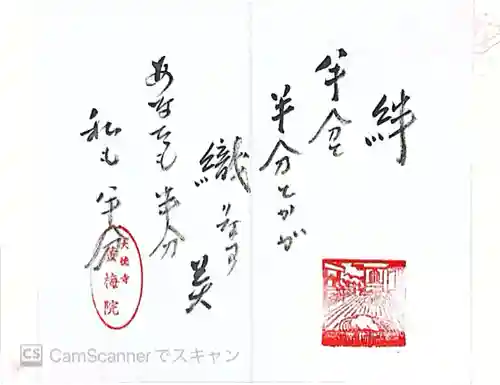 絆
半分と
半分とかが
織りなす
美
あなたも半分
私も半分
大徳寺
梅院
CS CamScannerでスキャン